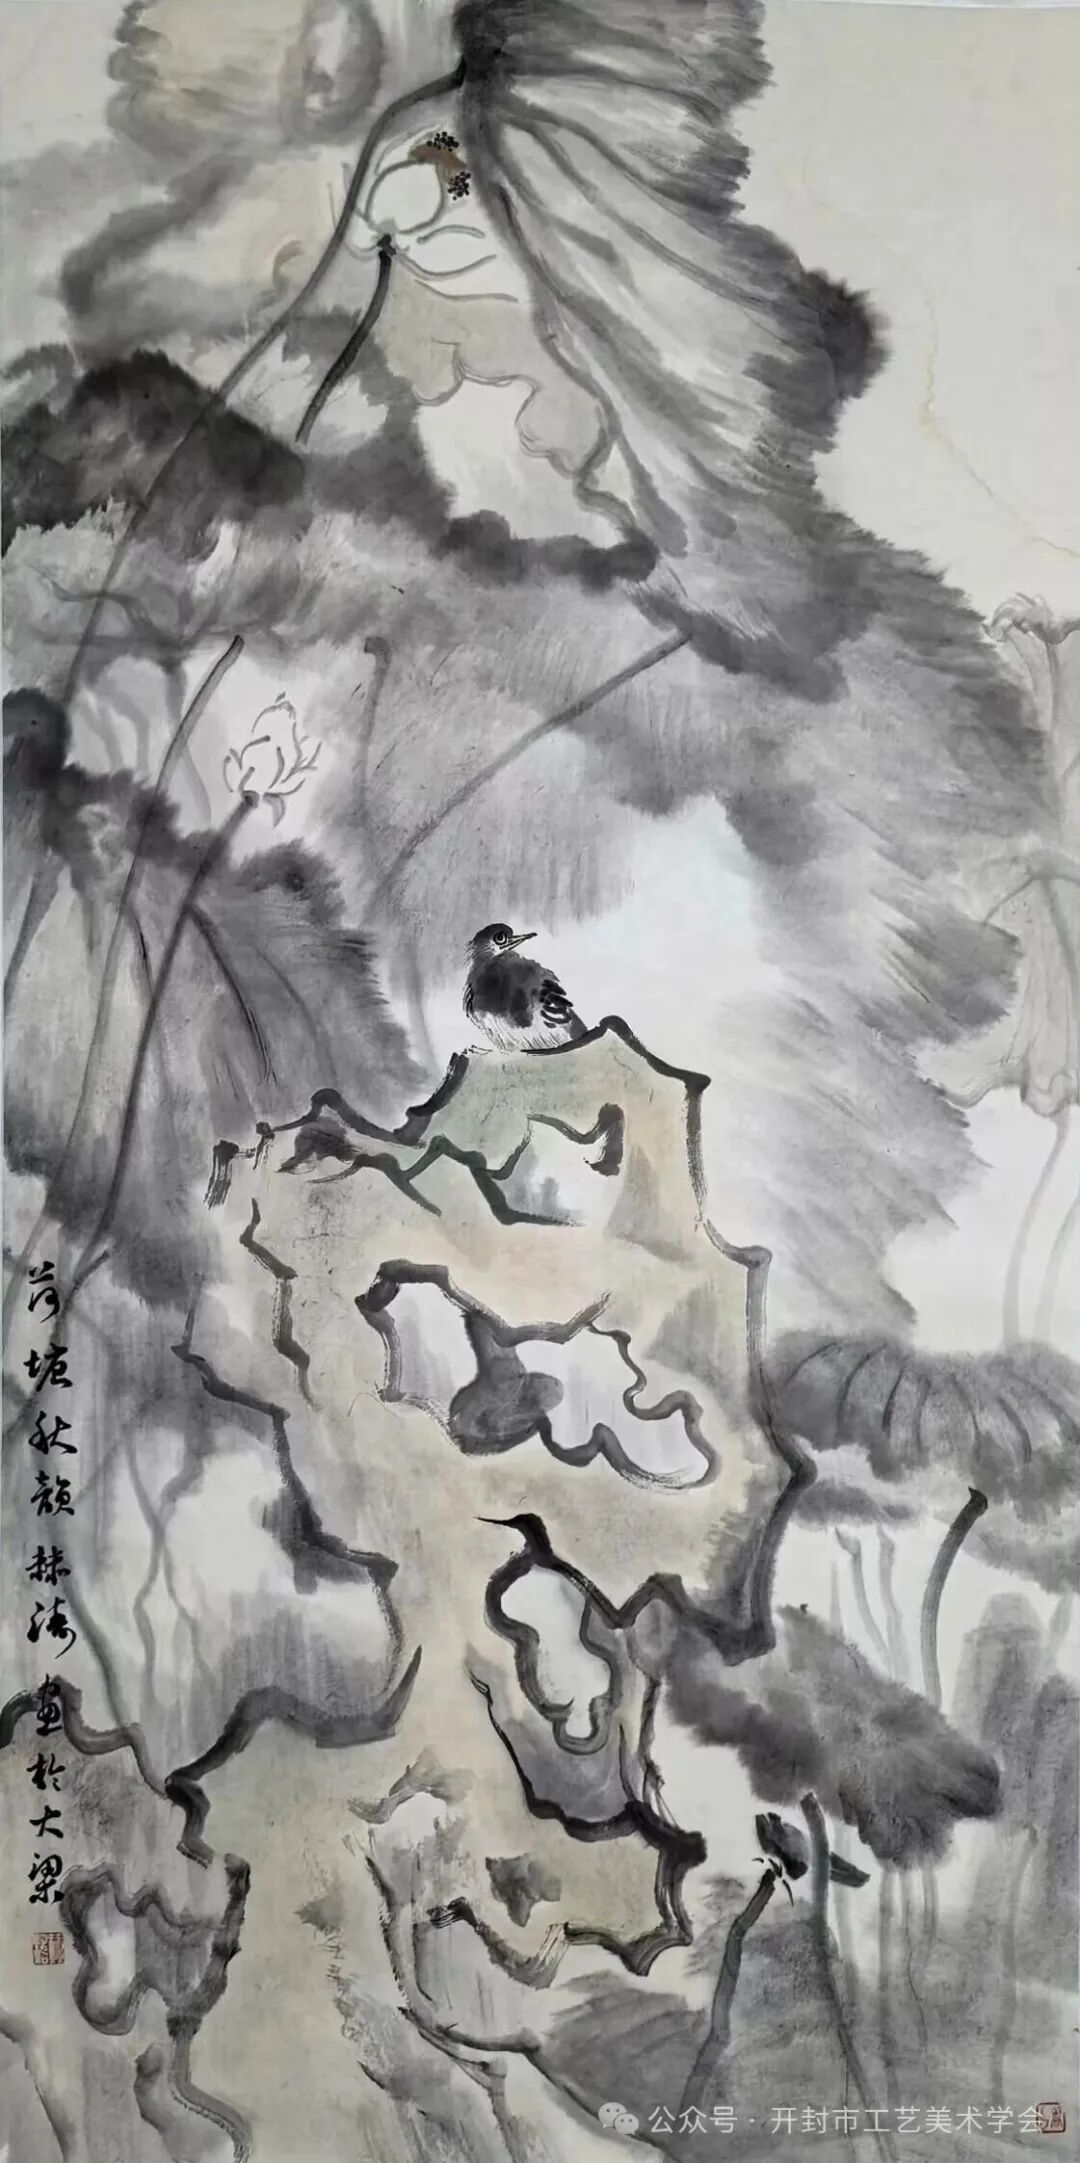 荷塘秋韻濤畫於大梁
公众号 · 开封市工艺美术学会